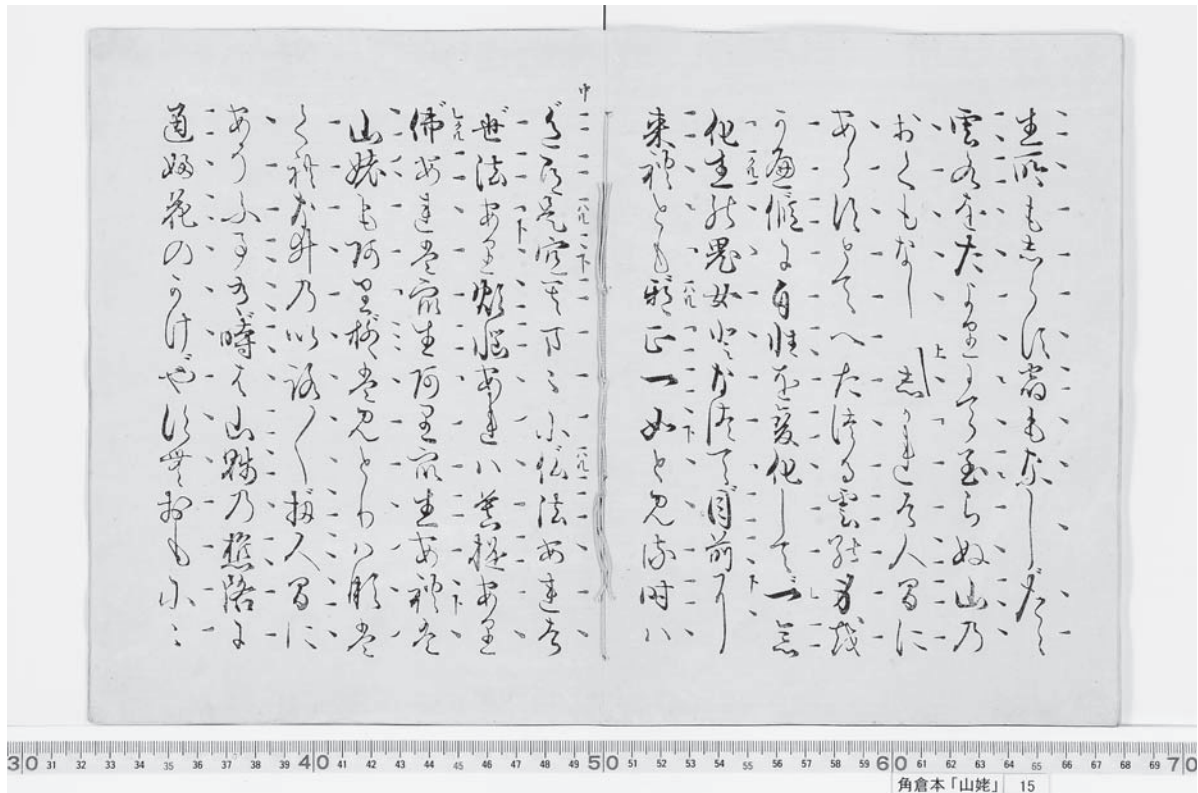 生所もしらす宿もなしたゝ
雲水をたよりにて至らぬ山乃
おくもなし 上 しかれは人間に
あらすとてへたつる雲の身を
かへ仮に自性を変化して一念
化生の鬼女となつて目前に
来れとも邪正一如と見る時ハ
色即是空其まゝに仏法あれは
世法あり煩悩あれハ菩提あり
佛あれは衆生あり衆生あれは
山姥も阿里柳は見とり花は
くれなゐの以ろ〳〵扨人間に
あそふ事有時は山賤乃樵路に
通ふ花のかけやすむおもにに
30 31 32 33 34 35 36 37 38 39 40 41 42 43 44 45 46 47 48 49 50 51 52 53 54 55 56 57 58 59 60 61 62 63 64 65 66 67 68 69 70
角倉本「山姥」 15